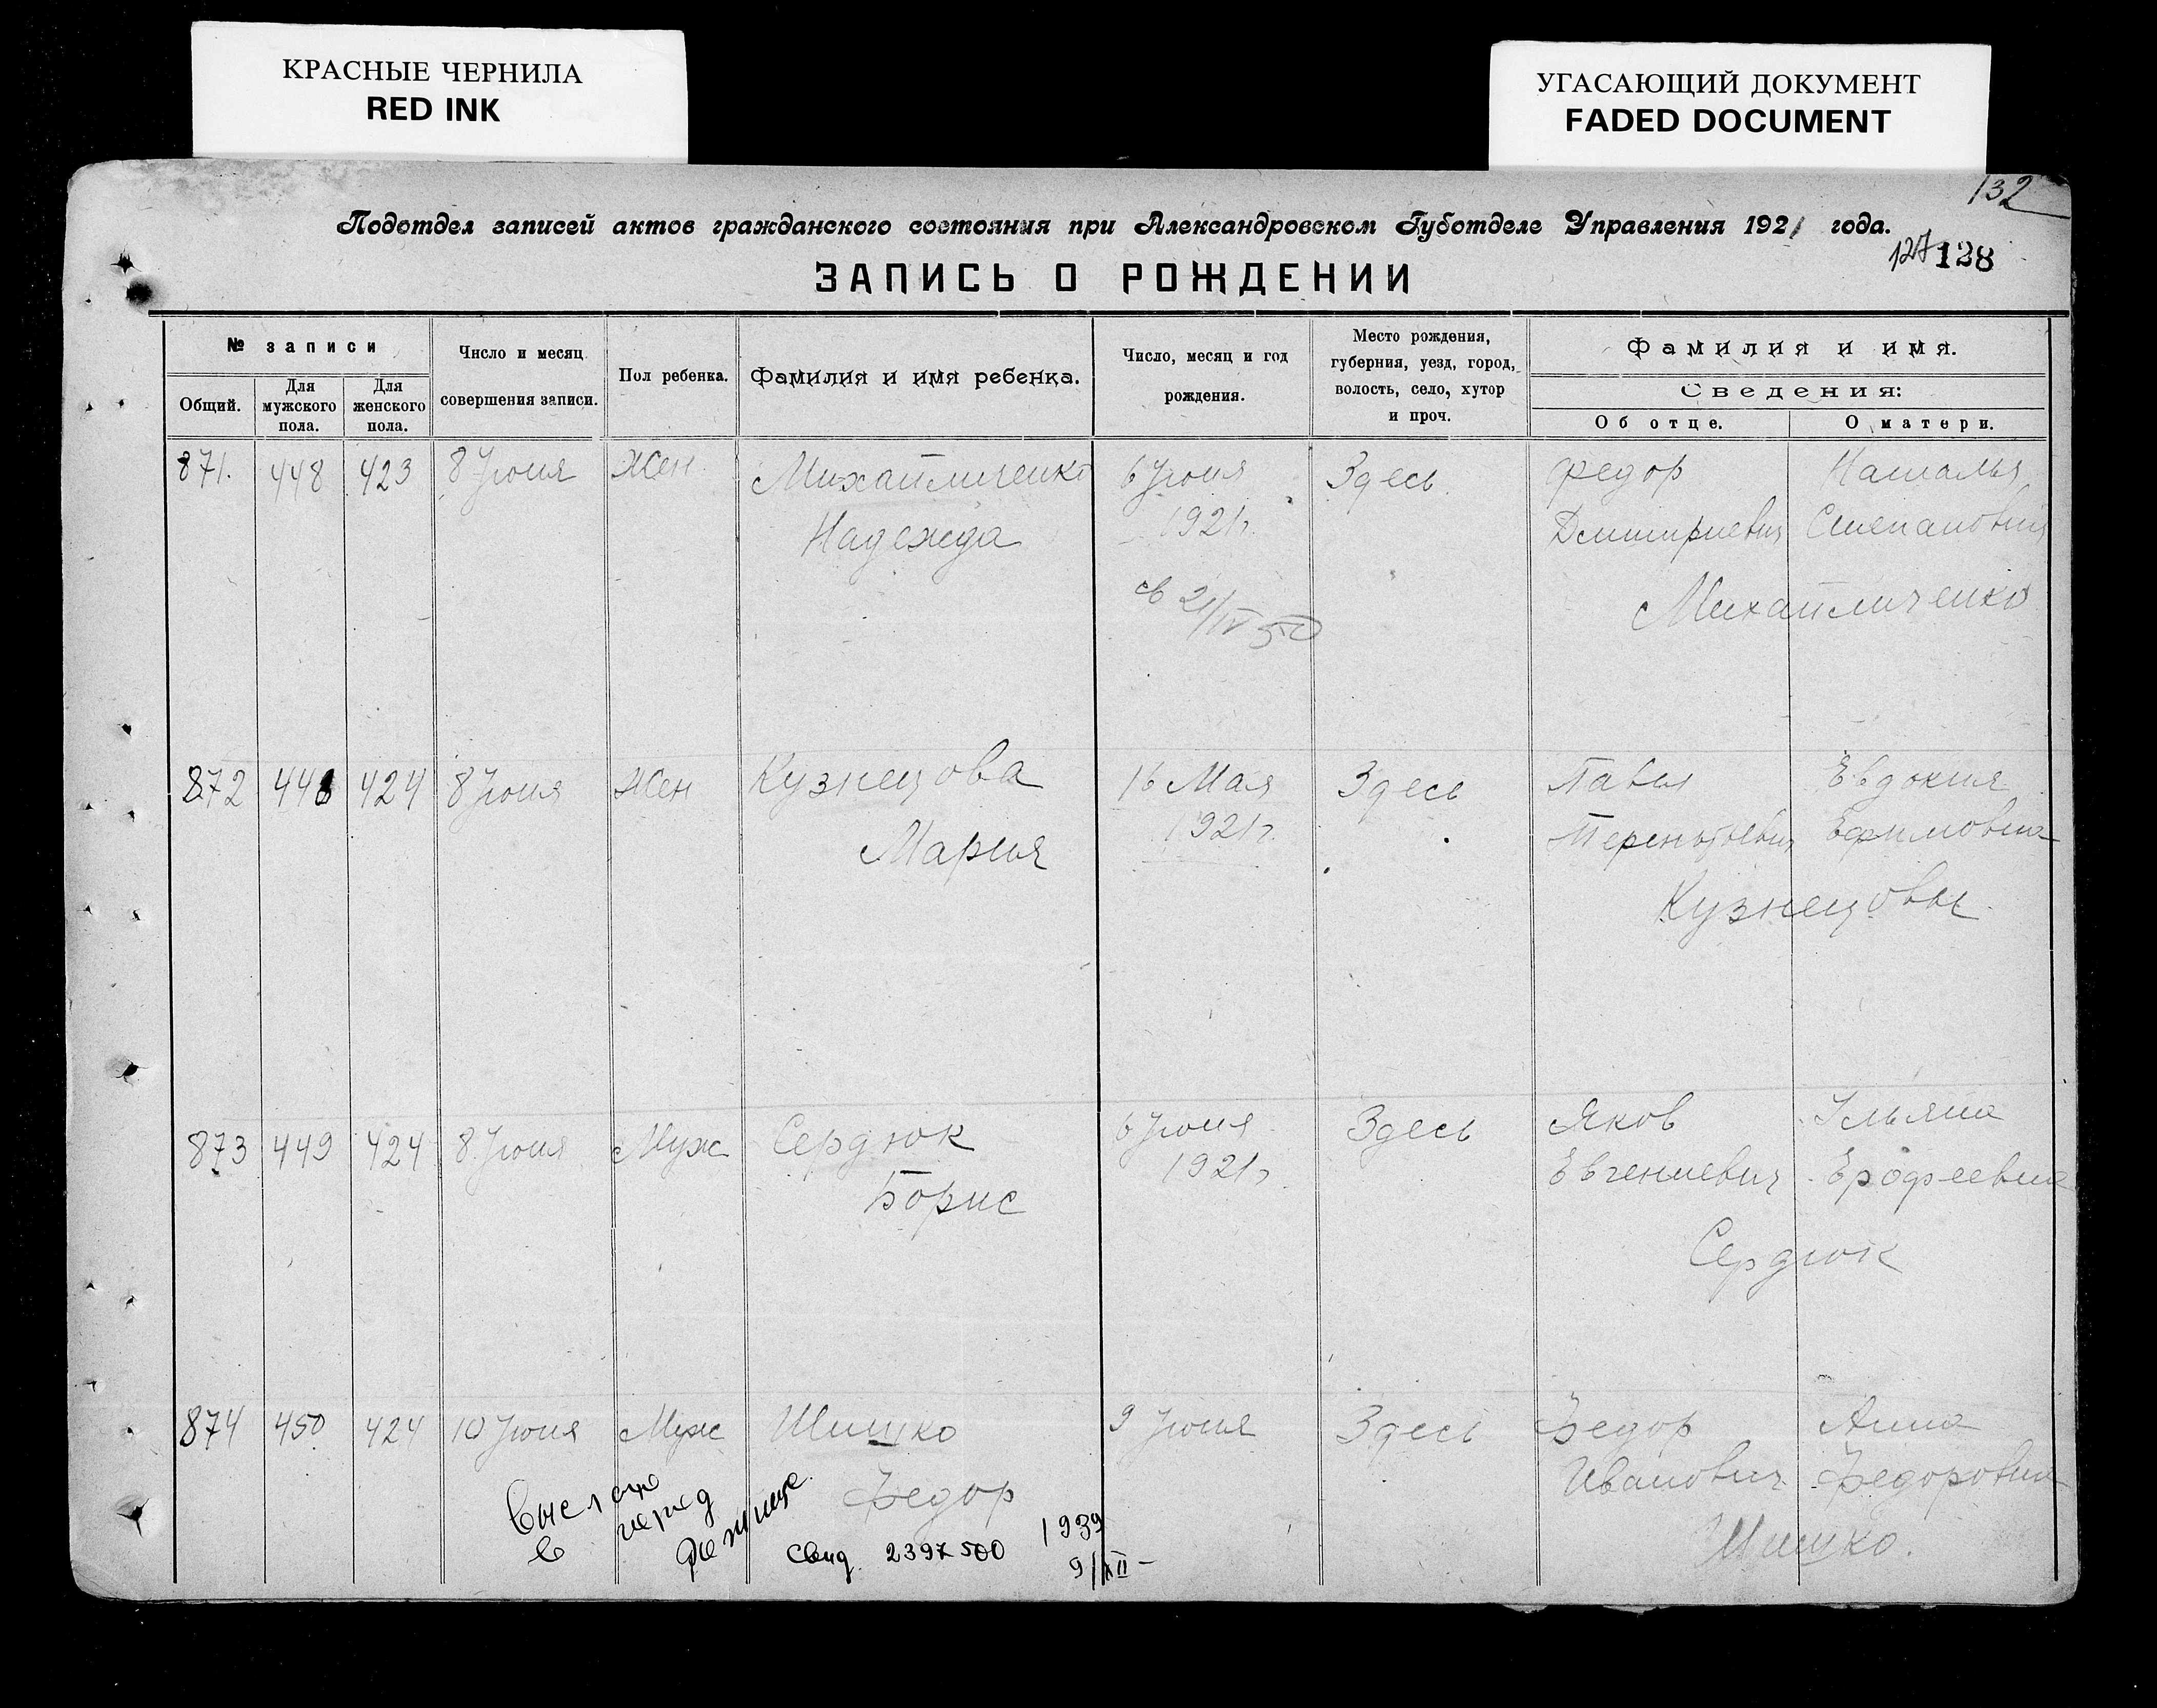 КРАСНЫЕ ЧЕРНИЛА
RED INK
УГАСАЮЩИЙ ДОКУМЕНТ
FADED DOCUMENT
132
Подотдел записей актов гражданского состояния при Александровском Губотделе Управления 1921 года.
127 128
ЗАПИСЬ О РОЖДЕНИИ
№ записи
Общий.
Для мужского пола.
Для женского пола.
Число и месяц совершения записи.
Пол ребенка.
Фамилия и имя ребенка.
Число, месяц и год рождения.
Место рождения, губерния, уезд, город, волость, село, хутор и проч.
Фамилия и имя.
Сведения:
Об отце.
О матери.
871. 448 423 8 Июня Жен Михайличенко 6 Июня Здесь Федор Наталья
Надежда 1921г. Дмитриевич Степановна
Михайличенко
св 21/IV 50
872 448 424 8 Июня Жен Кузнецова 16 Мая Здесь Павел Евдокия
Мария 1921г. Терентьевич Ефимовна
Кузнецовы
873 449 424 8 Июня Муж Сердюк 6 Июня Здесь Яков Ульяна
Борис 1921г Евгениевич Ерофеевна
Сердюк
874 450 424 10 Июня Муж Шишко 9 Июня Здесь Федор Анна
Федор Иванович Федоровна
Шишко.
в
свид. 2397500 1939
9/XII-